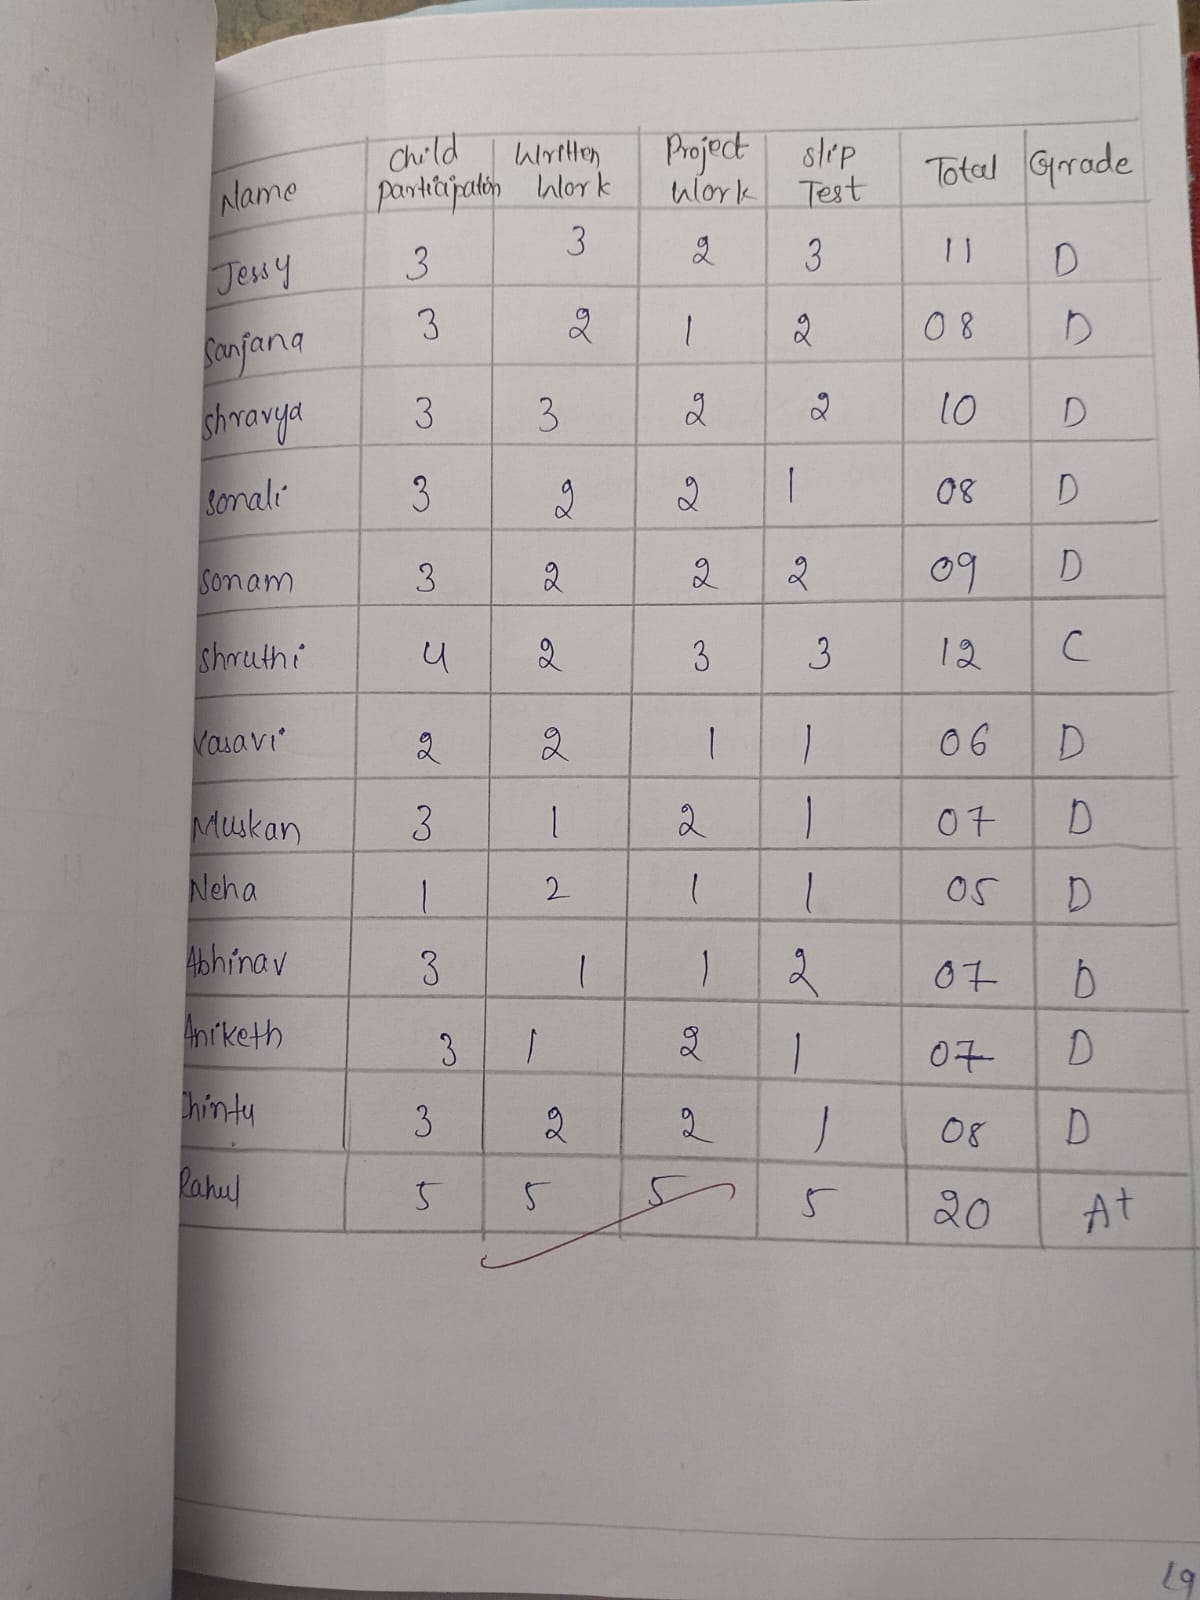 Name Child participation Written Work Project Work Slip Test Total Grade
Jessy 3 3 2 3 11 D
Sanjana 3 2 1 2 08 D
Shravya 3 3 2 2 10 D
Sonali 3 2 2 1 08 D
Sonam 3 2 2 2 09 D
Shruthi 4 2 3 3 12 C
Vasavi 2 2 1 1 06 D
Muskan 3 1 2 1 07 D
Neha 1 2 1 1 05 D
Abhinav 3 1 1 2 07 D
Aniketh 3 1 2 1 07 D
Chintu 3 2 2 1 08 D
Rahul 5 5 5 5 20 A+